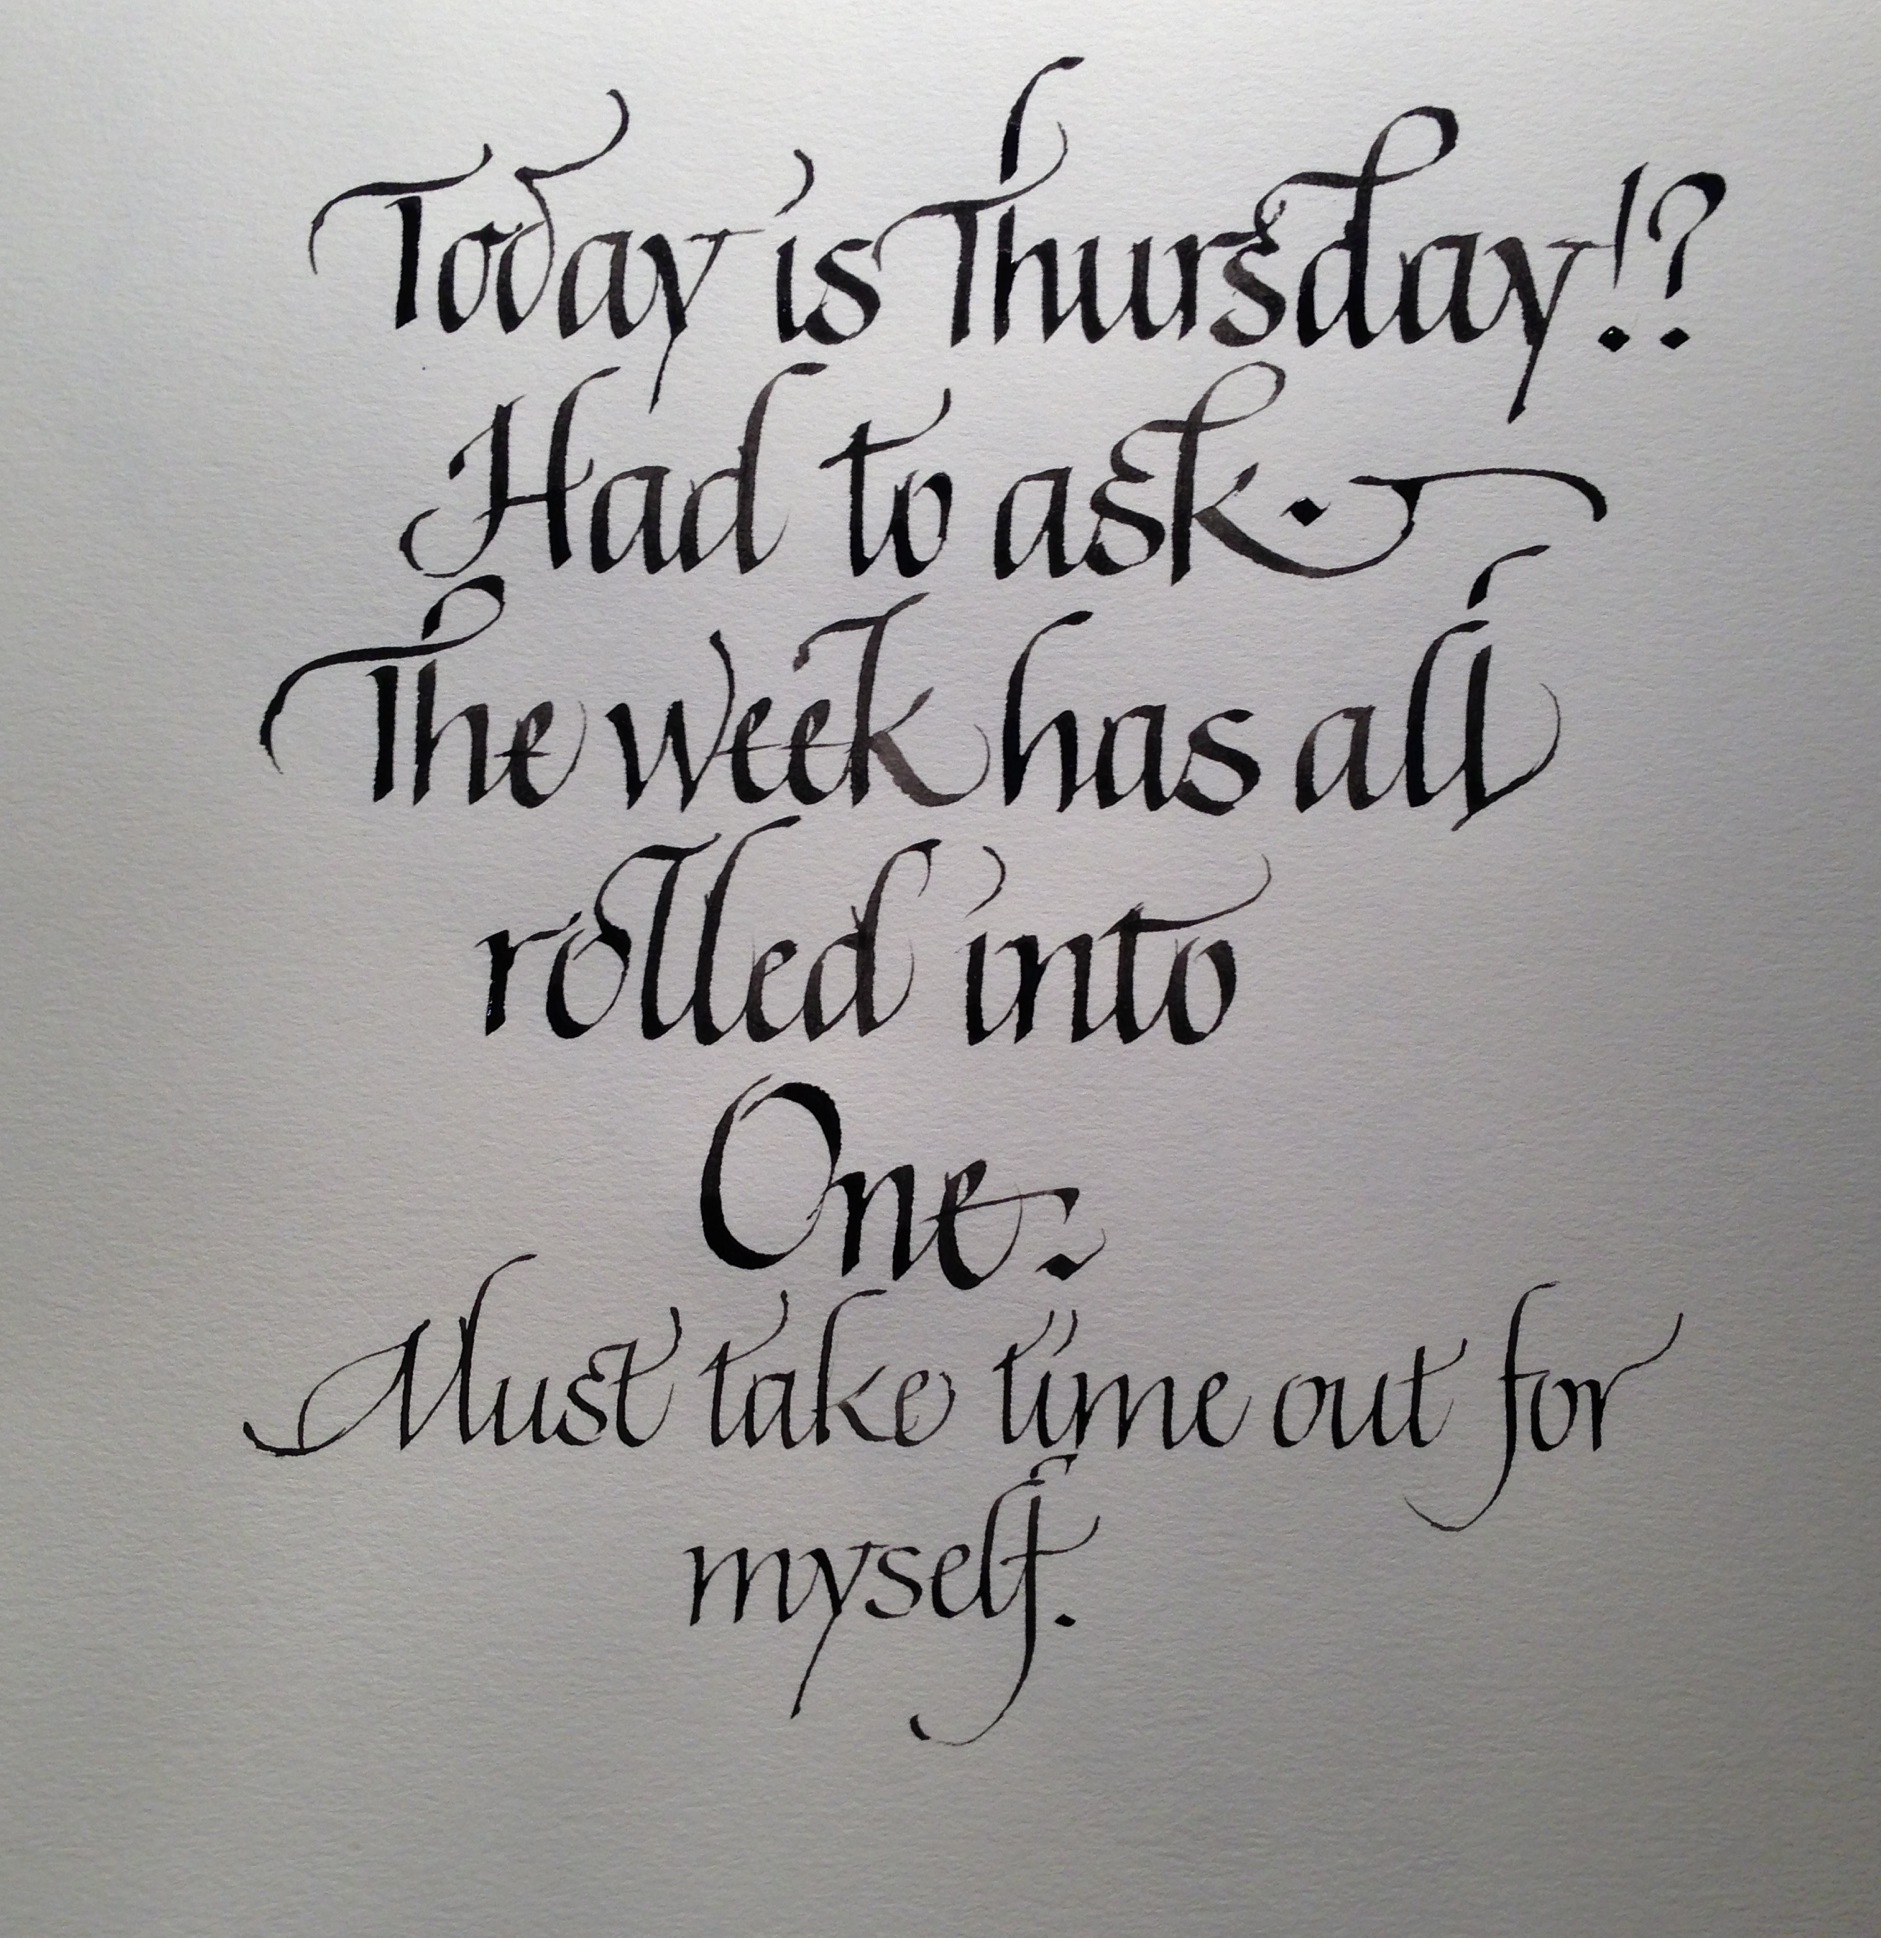 Today is Thursday!?
Had to ask.
The week has all
rolled into
One.
Must take time out for
myself.